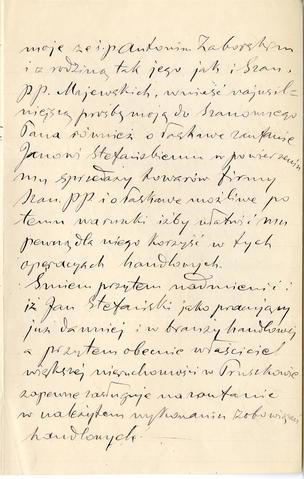 moje ze ś.p. Antonim Zaborskim
i z rodziną tak jego jak i Szan.
PP. Majewskich, wnieść najusil-
niejszą prośbę moją do Szanownego
Pana również o łaskawe zaufanie
Janowi Stefańskiemu w powierzeniu
mu sprzedaży towarów firmy
Szan. PP i o łaskawe możliwe po
temu warunki iżby ułatwić mu
pewną dla niego korzyść w tych
operacyach handlowych.
Śmiem przytem nadmienić i
iż Jan Stefański jako pracujący
już dawniej i w branży handlowej
a przytem obecnie właściciel
większej nieruchomości w Pruszkowie
zapewne zasługuje na zaufanie
w należytem wykonaniu zobowiązań
handlowych.